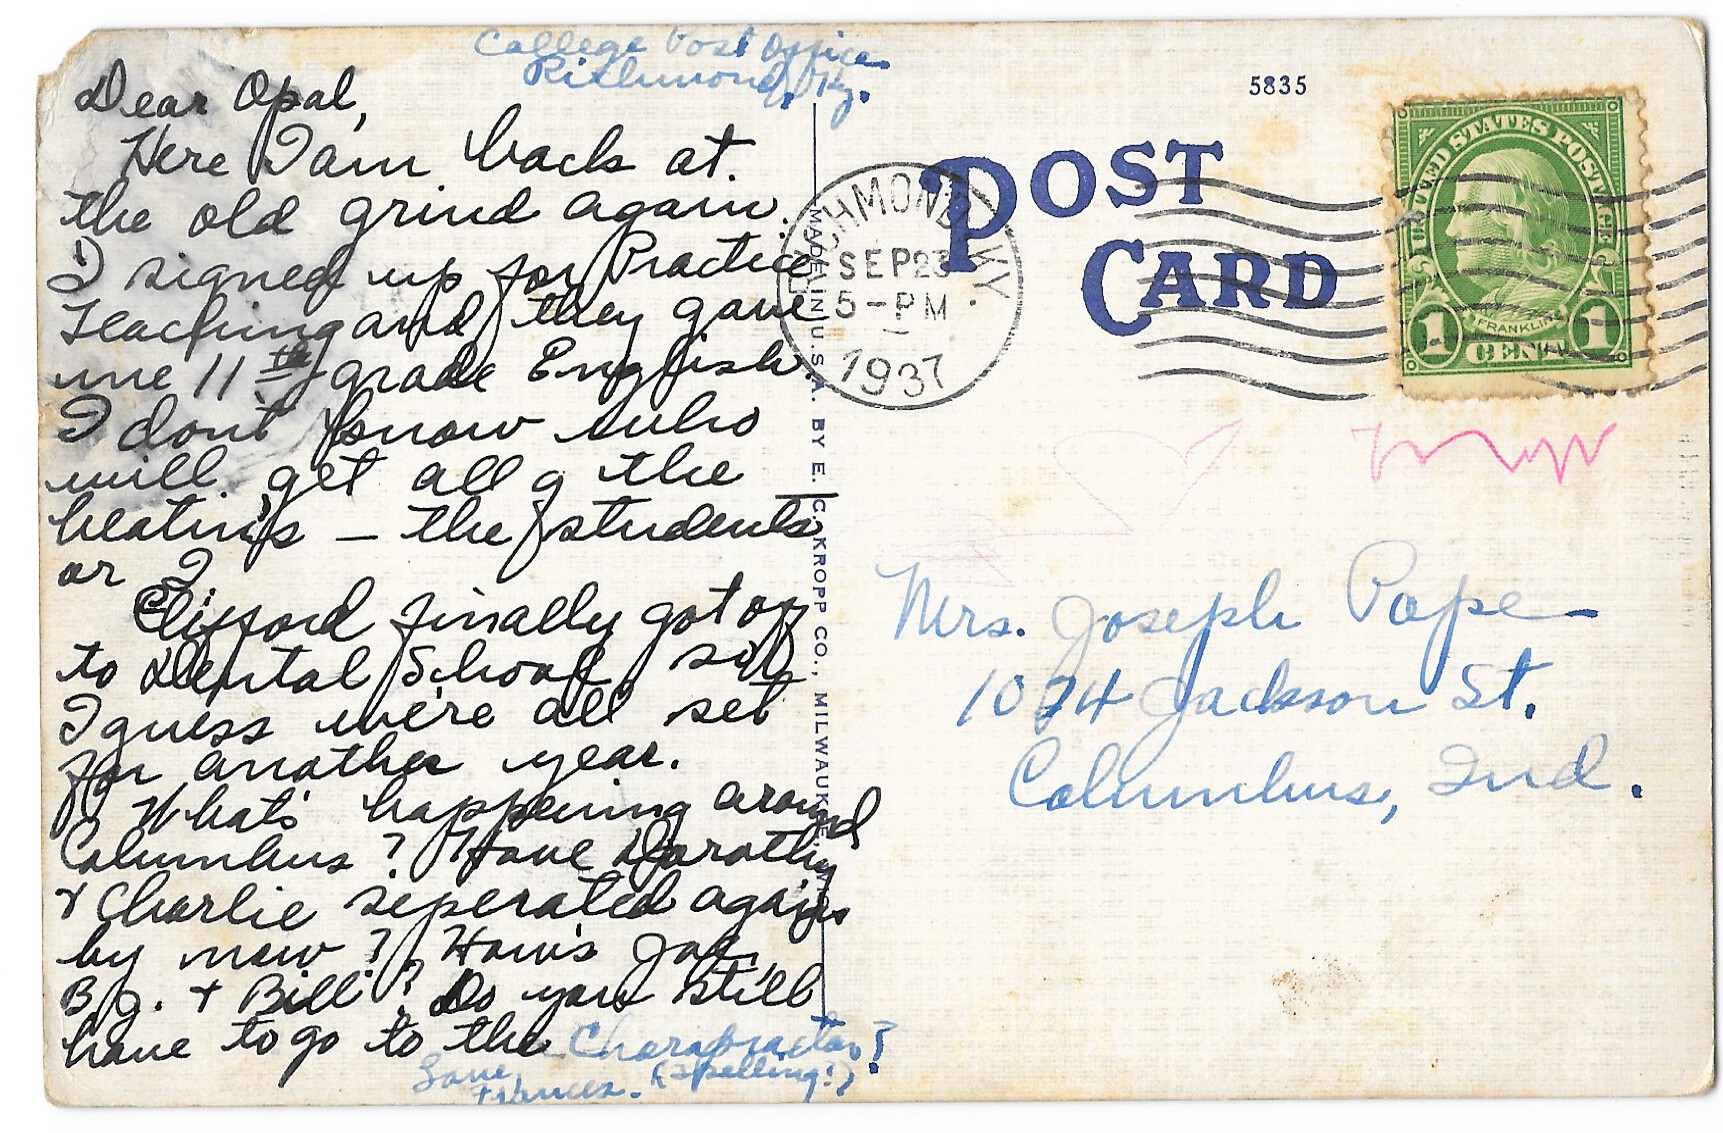 College Post Office
Richmond, Ky.
Dear Opal,
Here I am back at
the old grind again.
I signed up for Practice
Teaching and they gave
me 11th grade English.
I don't know who
will get all of the
beatings — the students
or I.
Clifford finally got off
to Dental School, so
I guess we're all set
for another year.
What's happening around
Columbus? Have Dorothy
& Charlie seperated again
by now? How's Joe,
B.J. & Bill? Do you still
have to go to the Charapractor?
(Spelling!)
Love,
Frances.
5835
POST
CARD
RICHMOND KY.
SEP 23
5-PM
1937
UNITED STATES POSTAGE
FRANKLIN
1 CENT 1
MADE IN U.S.A. BY E. C. KROPP CO., MILWAUKEE, WIS.
Mrs. Joseph Pope
1074 Jackson St.
Columbus, Ind.